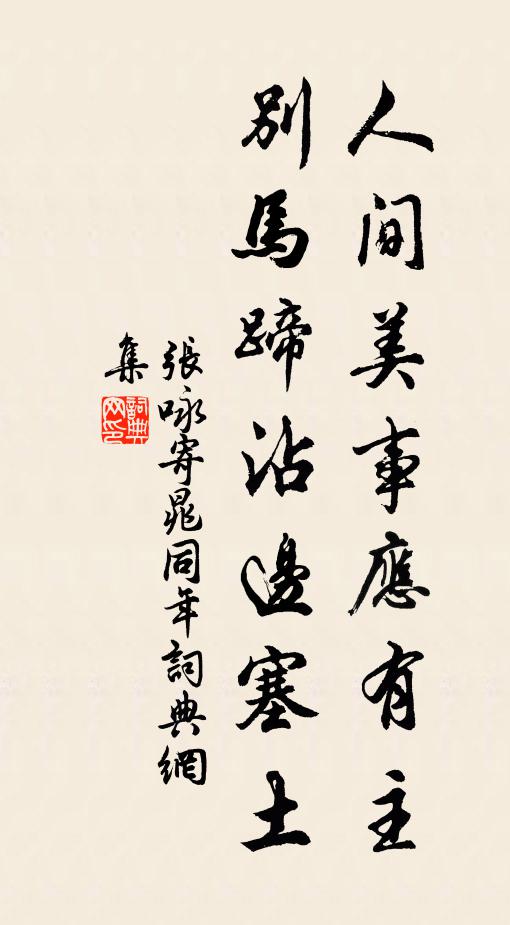 人間美事應有主
別馬蹄沾邊塞土
張咏寄晁同年詞典網
集
詞典
网印